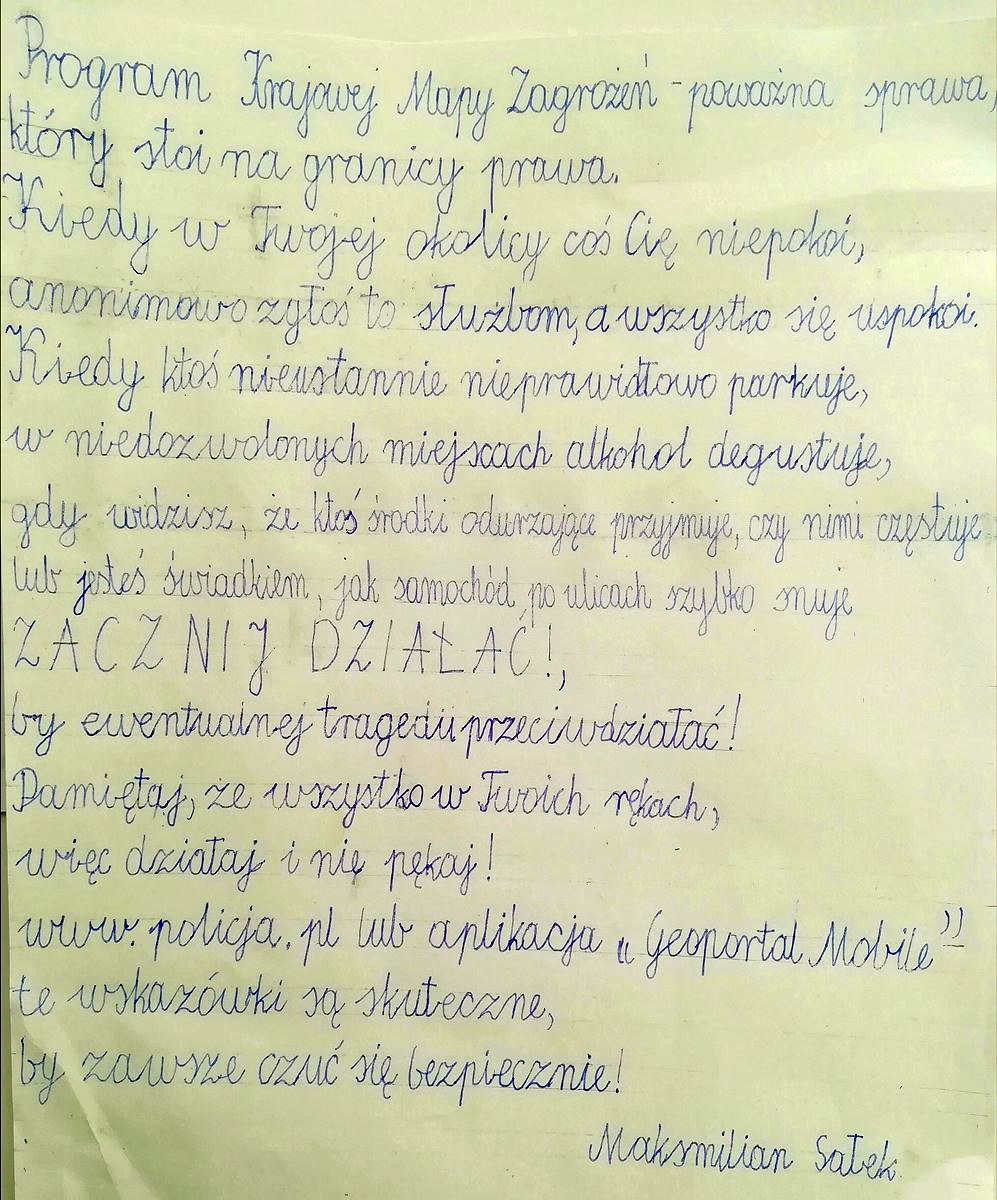 Program Krajowej Mapy Zagrożeń - poważna sprawa,
który stoi na granicy prawa.
Kiedy w Twojej okolicy coś Cię niepokoi,
anonimowo zgłoś to służbom, a wszystko się uspokoi.
Kiedy ktoś nieustannie nieprawidłowo parkuje,
w niedozwolonych miejscach alkohol degustuje,
gdy widzisz, że ktoś środki odurzające przyjmuje, czy nimi częstuje
lub jesteś świadkiem, jak samochód po ulicach szybko snuje
ZACZNIJ DZIAŁAĆ!,
by ewentualnej tragedii przeciwdziałać!
Pamiętaj, że wszystko w Twoich rękach,
więc działaj i nie pękaj!
www.policja.pl lub aplikacja „Geoportal Mobile”
te wskazówki są skuteczne,
by zawsze czuć się bezpiecznie!
Maksmilian Sałek